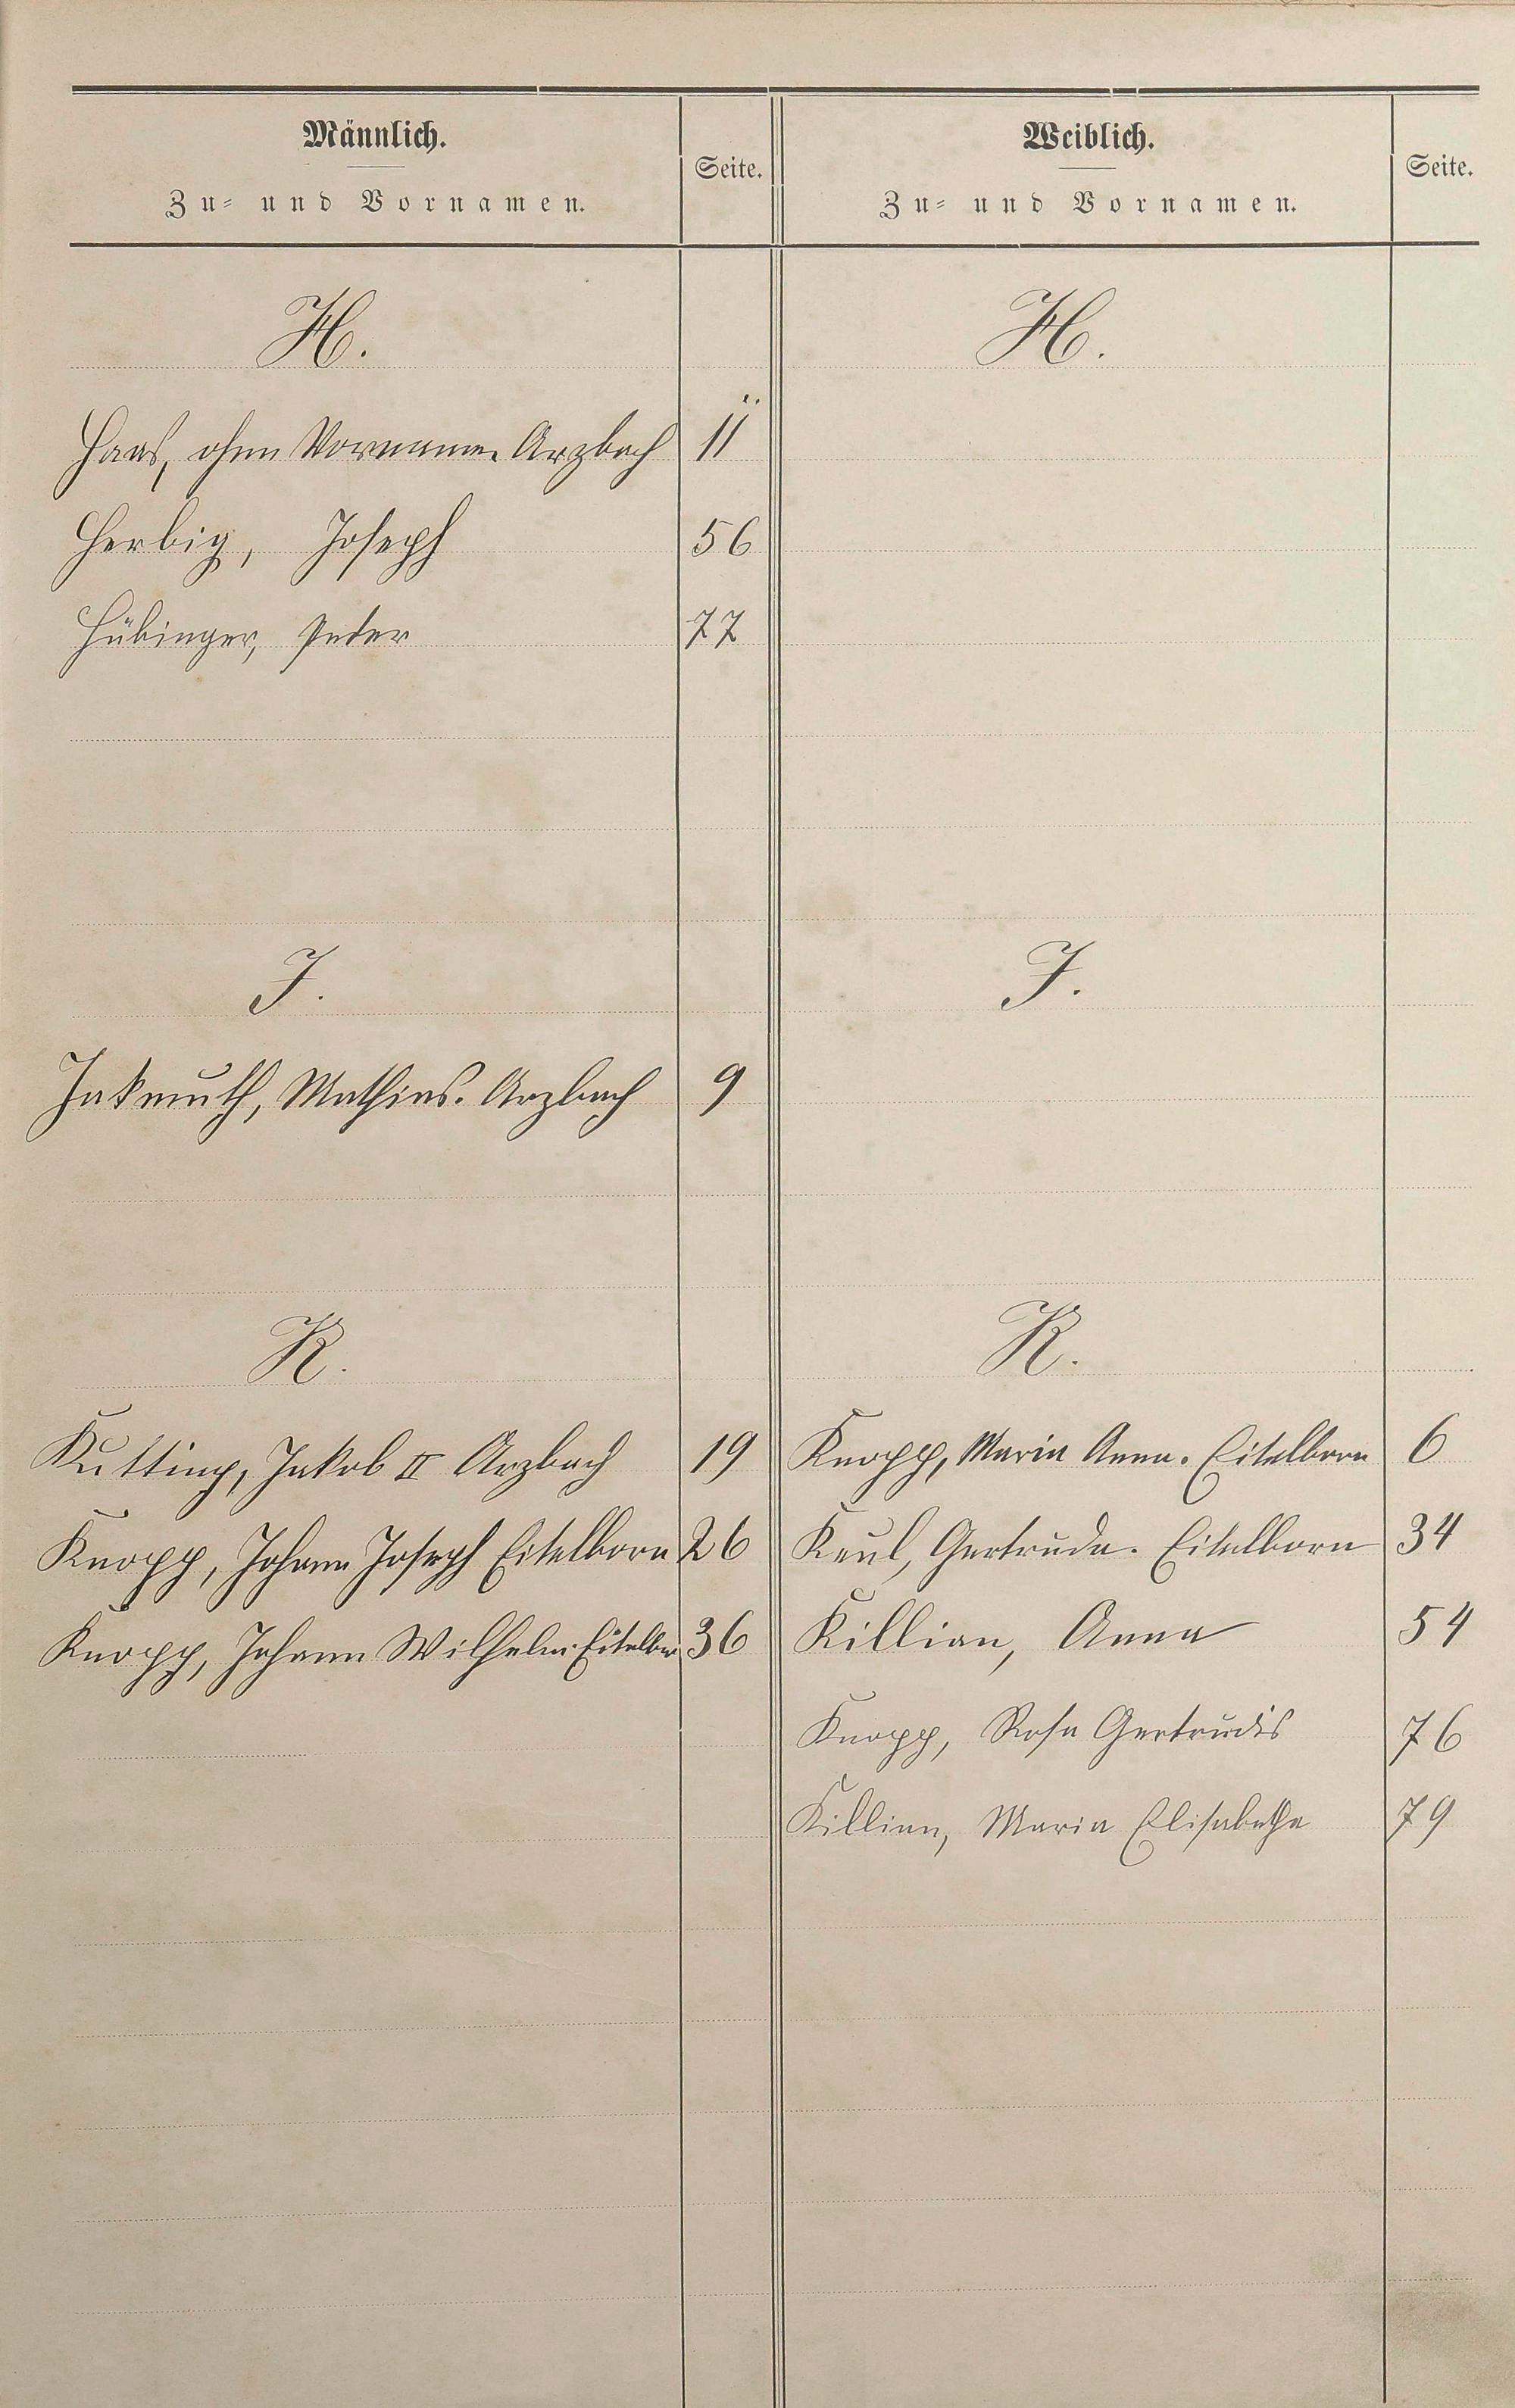 Männlich.
Zu- und Vornamen.
Seite.
Weiblich.
Zu- und Vornamen.
Seite.
H.
H.
Haas, ohne Vorname Arzbach 11
Herbig, Joseph 56
Hübinger, Peter 77
J.
J.
Jakmuth, Mathias. Arzbach 9
K.
K.
Kutting, Jakob II Arzbach 19
Knopp, Johann Joseph Eitelborn 26
Knopp, Johann Wilhelm Eitelbor 36
Knopp, Maria Anna. Eitelborn 6
Keul, Gertruda. Eitelborn 34
Killian, Anna 54
Knopp, Rosa Gertrudis 76
Killian, Maria Elisabetha 79